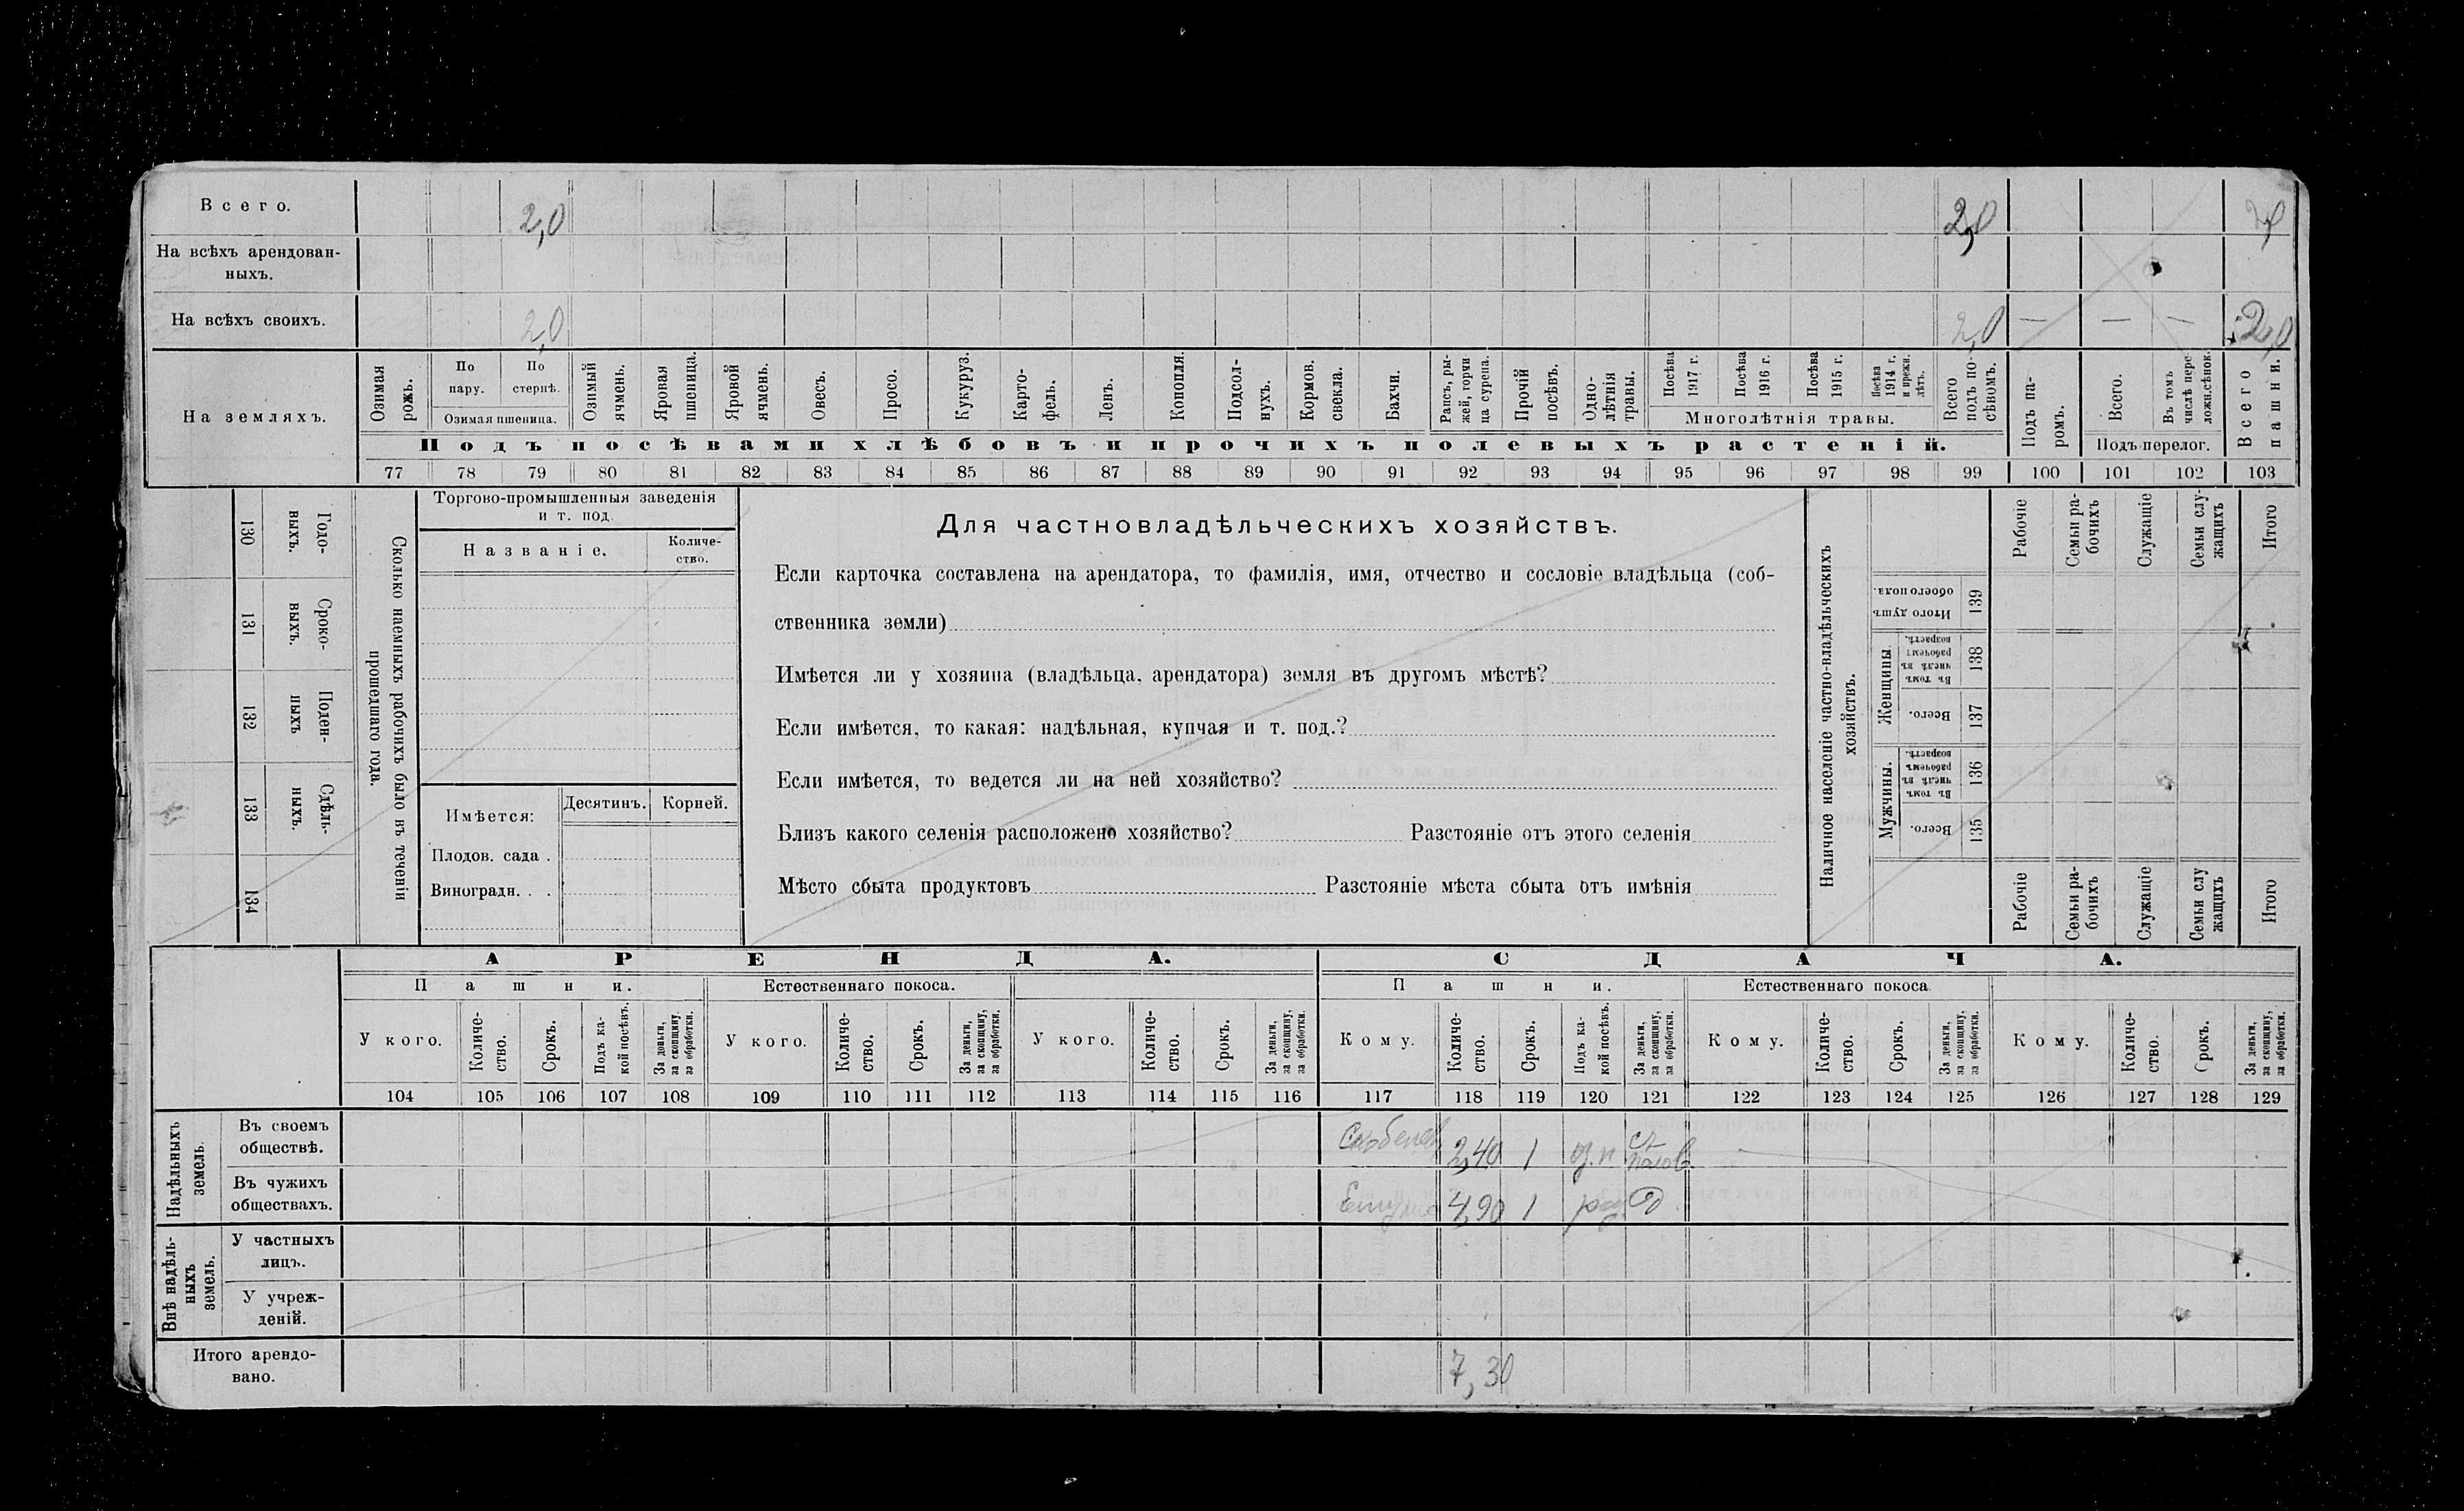 Всего. 2,0 2,0
На всѣхъ арендован-
ныхъ.
На всѣхъ своихъ. 2,0 2,0 — — — 2,0
На земляхъ.
Озимая рожь.
По пару.
По стернѣ.
Озимая пшеница.
Озимый ячмень.
Яровая пшеница.
Яровой ячмень.
Овесъ.
Просо.
Кукуруз.
Карто-
фель.
Ленъ.
Конопля.
Подсол-
нухъ.
Кормов.
свекла.
Бахчи.
Рапсъ, ры-
жей, горчи
ца сурепа.
Прочій
посѣвъ.
Одно-
лѣтнія
травы.
Посѣва
1917 г.
Посѣва
1916 г.
Посѣва
1915 г.
Посѣва
1914 г.
и прежн.
лѣтъ.
Многолѣтнія травы.
Всего
подъ по-
сѣвомъ.
Подъ па-
ромъ.
Всего.
Въ томъ
числѣ пере-
ложн.сѣнокос.
Подъ перелог.
Всего
пашни.
Подъ посѣвами хлѣбовъ и прочихъ полевыхъ растеній.
77 78 79 80 81 82 83 84 85 86 87 88 89 90 91 92 93 94 95 96 97 98 99 100 101 102 103
Годо-
выхъ.
130
Сроко-
выхъ.
131
Поден-
ныхъ
132
Сдѣль-
ныхъ.
133
134
Сколько наемныхъ рабочихъ было въ теченіи
прошедшаго года.
Торгово-промышленныя заведенія
и т. под.
Названіе.
Количе-
ство.
Имѣется:
Десятинъ. Корней.
Плодов. сада .
Виноградн. . .
Для частновладѣльческихъ хозяйствъ.
Если карточка составлена на арендатора, то фамилія, имя, отчество и сословіе владѣльца (соб-
ственника земли)
Имѣется ли у хозяина (владѣльца, арендатора) земля въ другомъ мѣстѣ?
Если имѣется, то какая: надѣльная, купчая и т. под.?
Если имѣется, то ведется ли на ней хозяйство?
Близъ какого селенія расположено хозяйство? Разстояніе отъ этого селенія
Мѣсто сбыта продуктовъ Разстояніе мѣста сбыта отъ имѣнія
Наличное населеніе частно-владѣльческихъ
хозяйствъ.
Рабочіе
Семьи ра-
бочихъ
Служащіе
Семьи слу-
жащихъ
Итого
Итого душъ
обоего пола.
139
Женщины.
Въ томъ
числѣ въ
рабочемъ
возрастѣ.
138
Всего.
137
Мужчины.
Въ томъ
числѣ въ
рабочемъ
возрастѣ.
136
Всего.
135
Рабочіе
Семьи ра-
бочихъ
Служащіе
Семьи слу
жащихъ
Итого
АРЕНДА. СДАЧА.
Пашни. Естественнаго покоса. Пашни. Естественнаго покоса
У кого.
Количе-
ство.
Срокъ.
Подъ ка-
кой посѣвъ.
За деньги,
за скопщину,
за обработки.
У кого.
Количе-
ство.
Срокъ.
За деньги,
за скопщину,
за обработки.
У кого.
Количе-
ство.
Срокъ.
За деньги,
за скопщину,
за обработки.
Кому.
Количе-
ство.
Срокъ.
Подъ ка-
кой посѣвъ.
За деньги,
за скопщину,
за обработки.
Кому.
Количе-
ство.
Срокъ.
За деньги,
за скопщину,
за обработки.
Кому.
Количе-
ство.
Срокъ.
За деньги,
за скопщину,
за обработки.
104 105 106 107 108 109 110 111 112 113 114 115 116 117 118 119 120 121 122 123 124 125 126 127 128 129
Надѣльныхъ
земель.
Въ своемъ
обществѣ.
2,40 1 оз.п
Въ чужихъ
обществахъ.
4,90 1
Внѣ надѣль-
ныхъ
земель.
У частныхъ
лицъ.
У учреж-
деній.
Итого арендо-
вано.
7,30